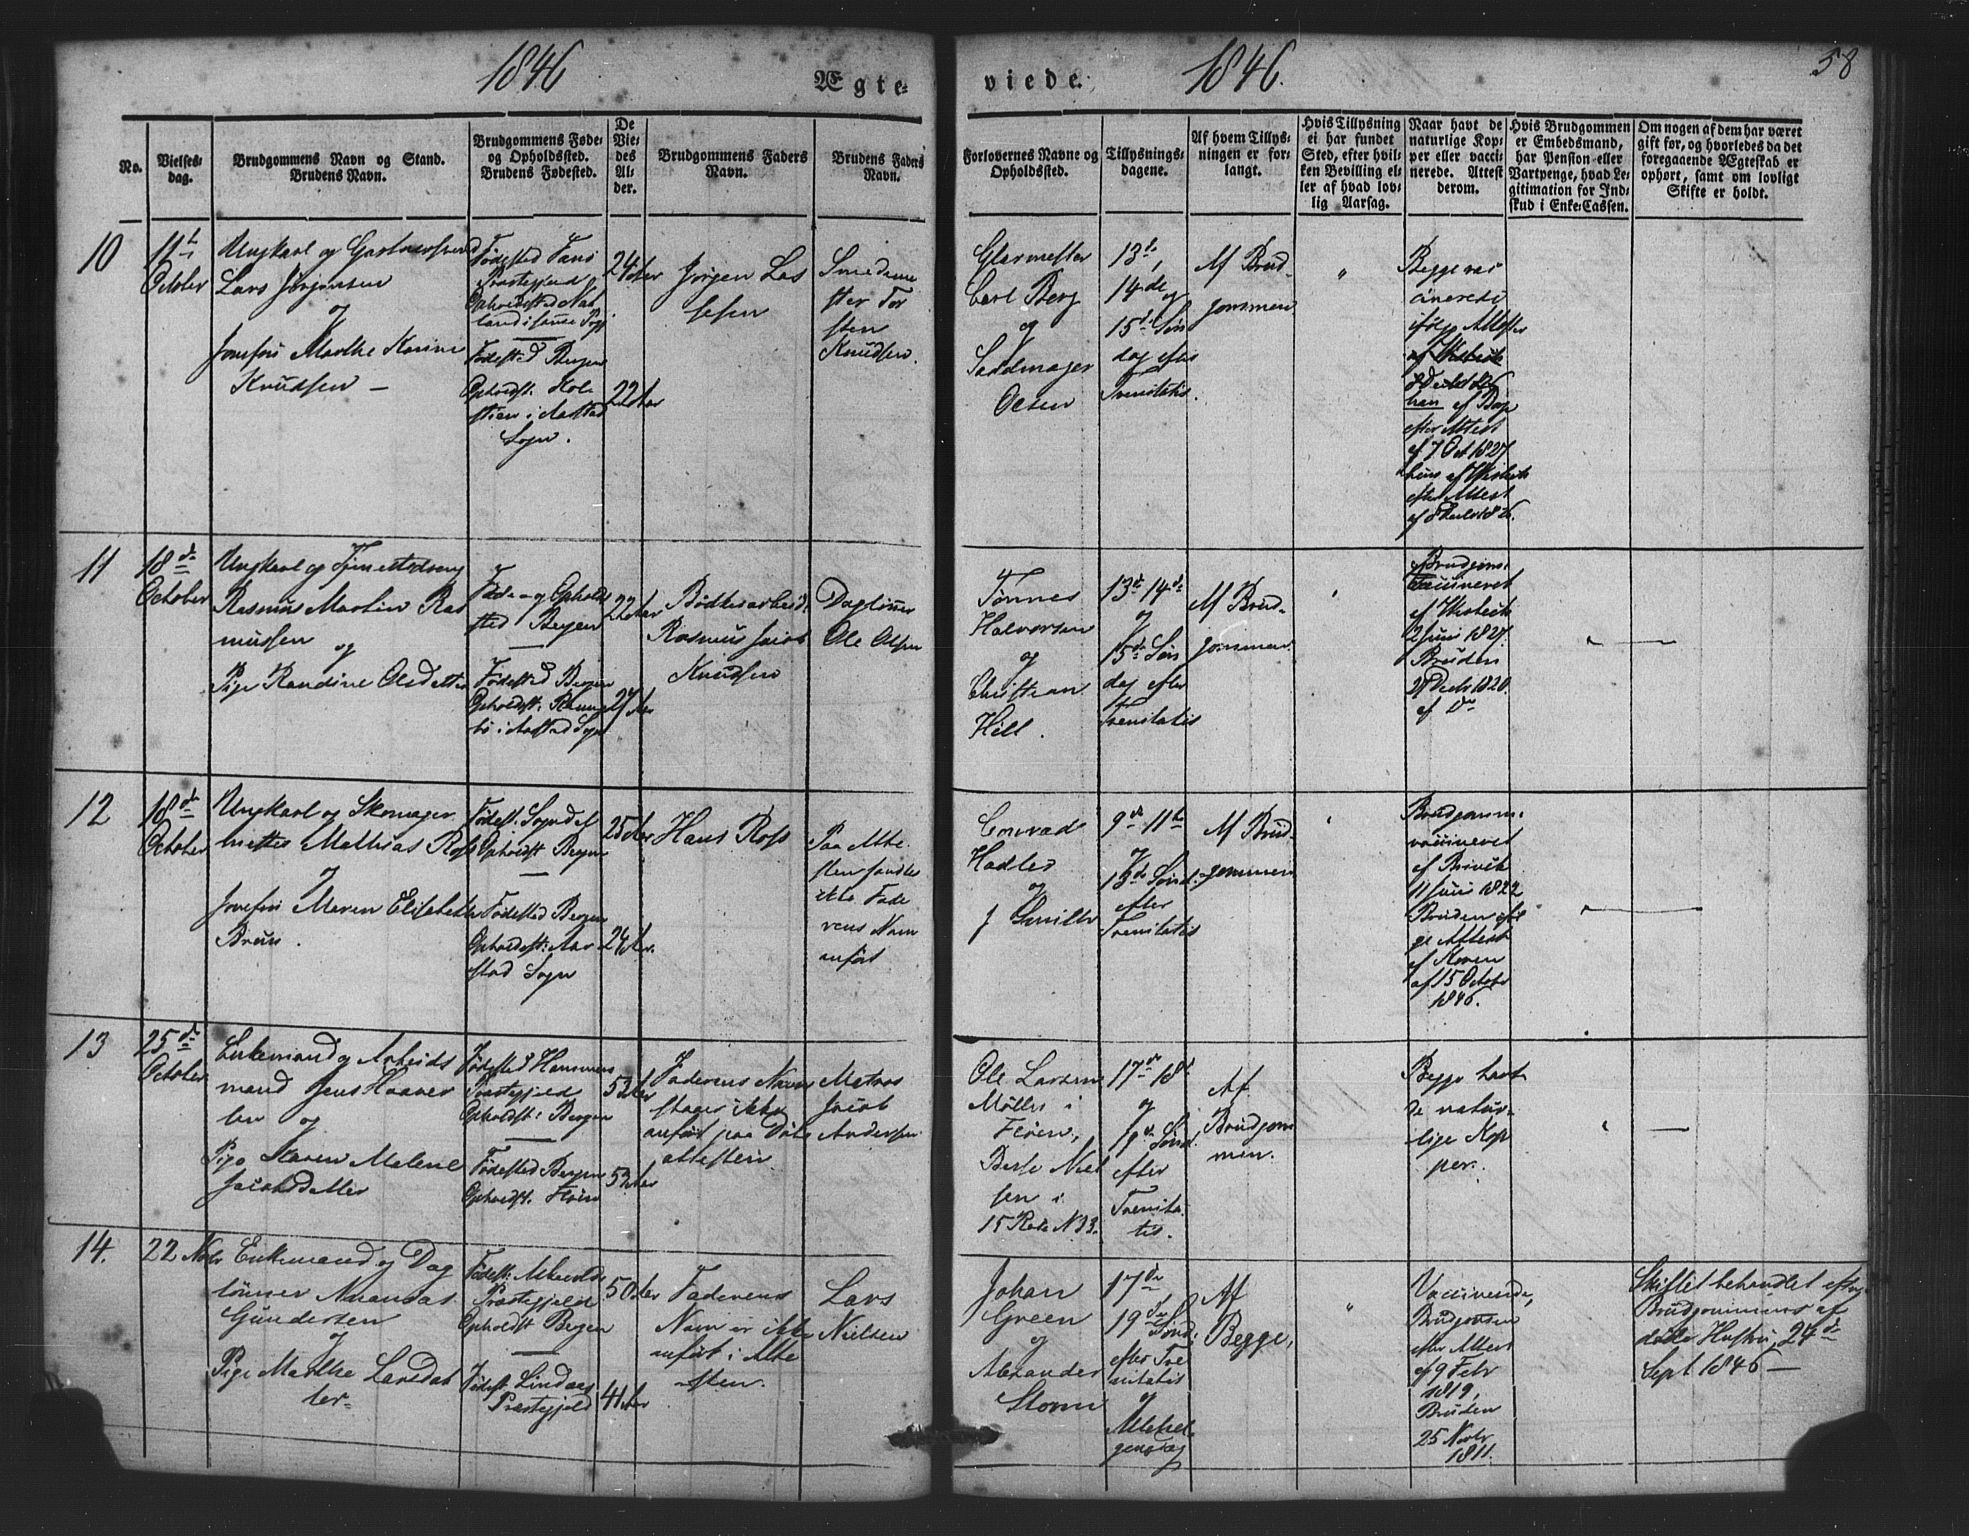 1846
Ægte=
viede.
1846.
58
No.
Vielses-
dag.
Brudgommens Navn og Stand.
Brudens Navn.
Brudgommens Føde-
og Opholdssted.
Brudens Fødested.
De
Vie-
des
Al-
der.
Brudgommens Faders
Navn.
Brudens Faders
Navn.
Forlovernes Navne og
Opholdssted.
Tillysnings-
dagene.
Af hvem Tillys-
ningen er for-
langt.
Hvis Tillysning
ei har fundet
Sted, efter hvil-
ken Bevilling el-
ler af hvad lov-
lig Aarsag.
Naar havt de
naturlige Kop-
per eller vacci-
nerede. Attest
derom.
Hvis Brudgommen
er Embedsmand,
har Pension eller
Vartpenge, hvad Le-
gitimation for Ind-
skud i Enke-Cassen.
Om nogen af dem har været
gift før, og hvorledes da det
foregaaende Ægteskab er
ophørt, samt om lovligt
Skifte er holdt.
10
11te
October
Ungkarl og
Lars Jørgensen
og
Jomfru Marthe Karine
Knudsen —
Fødested Fane
Præstegield
Fødested Bergen
Opholdst.
Sogn.
24 Aar
22 Aar
Jørgen Las
sesen
Smedeme
ster Tor
sten
Knudsen.
Glarmester
Carl Berg
og
Sadelmager
Olsen
13de,
14de og
15de Søn
dag efter
Trinitatis.
Af Brud-
gommen
"
Begge vac
cinerede
ifølge Attester
af Bergen
efter Attest
af 7 Oct 1827
efter Attest
11
18de
October
Ungkarl og
Rasmus Martin Ras
mussen
og
Pige Randine Olsdatter
Føde- og Opholds
sted Bergen
Fødested Bergen
Opholdst:
bø i Aarstad Sogn
22 Aar
27 Aar
Bødkerarbeid.
Rasmus Jacob
Knudsen
Daglönner
Ole Olsen
Tønnes
Halvorsen
og
Christian
Hill.
13de 14de
og
15de Søn
dag efter
Trinitatis
Af Brud-
gommen.
Brudgom.
vaccineret
2 Juni 1827.
Bruden
1820.
af Do
12
18de
October
Ungkarl og Skomager
mester Mathias Ross
og
Jomfru Maren Elisabeth
Brun.
Fødest: Sogndal
Opholdst Bergen
Fødested Bergen
Opholdst: Aar
stad Sogn
25 Aar
24 Aar.
Hans Ross
Paa Atte
sten fandtes
ikke Fade
rens Navn
anført
Conrad
Hadler
og
J Smith
9de 11te
og
13de Sønd.
efter
Trinitatis
Af Brud-
gommen
Brudgomm.
vaccineret
11 Juni 1822
Bruden iføl
ge Attest
af Koren
af 15 October
1846.
13
25de
October
Enkemand og Arbeids
mand Jens Haaver
sen og
Pige Karen Malene
Jacobsdatter
Fødested
Præstegjeld
Opholdst: Bergen
Fødested Bergen
Opholdst. Fløen
52 Aar
52 Aar
Faderens Navn
staaer ikke
anført paa Døbe
attesten.
Matros
Jacob
Andersen
Ole Larsen
Møller i
Fløen,
Berke Niel
sen i
15 Rode N 33.
17de 18de
og
19de Sønd.
efter
Trinita
tis.
Af
Brudgom
men.
Begge havt
de natur-
lige Kop
per.
14.
22 Novbr
Enkemand og Dag
lönner
Gundersen
og
Pige Marthe Larsdat
ter
Fødest:
Præstegjeld
Opholdst Bergen
Fødest Lindaas
Præstegjeld
50 Aar
41 Aar
Faderens
Navn er ikke
anført i Atte
sten.
Lars
Nielsen
Johan
Green
og
Alexander
Storm
17de,
19de Sønd.
efter Tri
nitatis
og
Allehel-
gensdag
Af
Begge.
"
Vaccinerede,
Brudgommen
efter Attest
af 9 Febr
1819,
Bruden
25 Novbr
1811.
Skiftet behandlet efter
Brudgommens af
døde Hustru 24de
Sept 1846 —